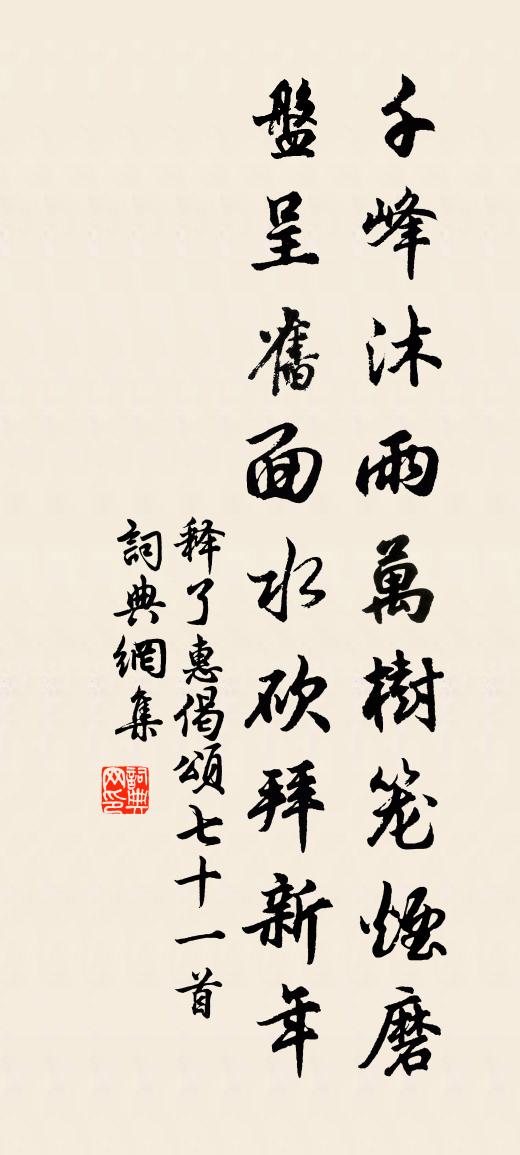 千峰沐雨萬樹笼煙磨
盤呈舊面水砍拜新年
释了惠偈頌七十一首
詞典網集
詞典网印